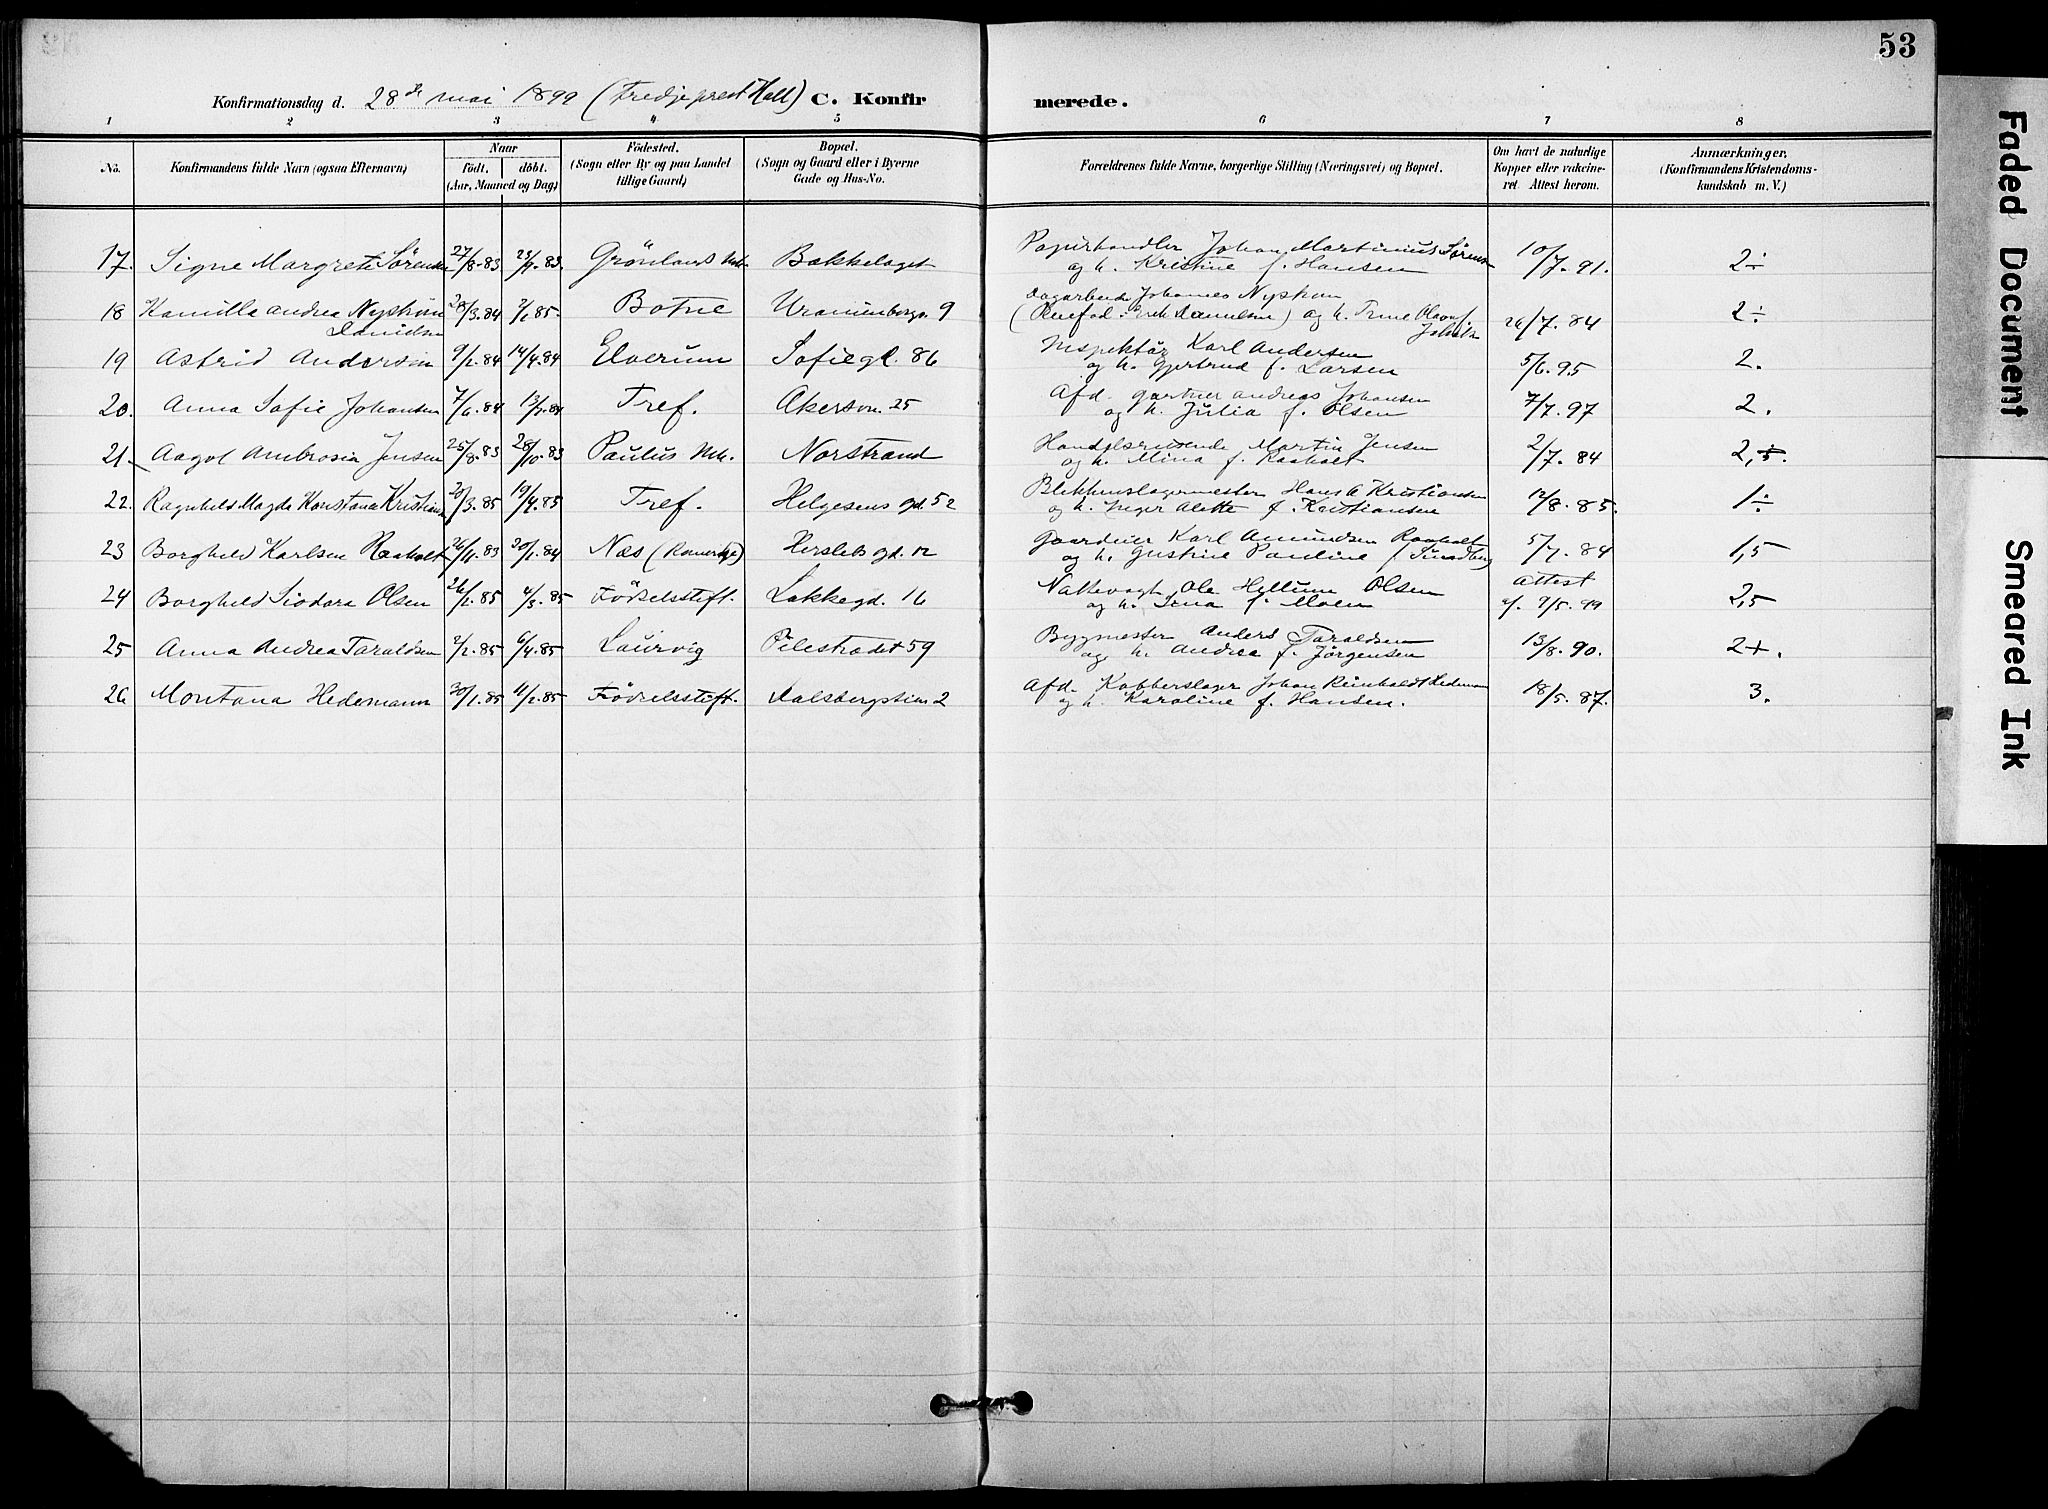 53
Konfirmationsdag d. 28de mai 1899 (Tredjeprest Hall) C. Konfirmerede.
1 2 3 4 5 6 7 8
No.
Konfirmandens fulde Navn (ogsaa Efternavn)
Naar
födt. döbt.
(Aar, Maaned og Dag)
Födested.
(Sogn eller By og paa Landet
tillige Gaard)
Bopæl.
(Sogn og Gaard eller i Byerne
Gade og Hus-No.
Forældrenes fulde Navne, borgerlige Stilling (Næringsvei) og Bopæl.
Om havt de naturlige
Kopper eller vakcine-
ret Attest herom.
Anmærkninger,
(Konfirmandens Kristendoms-
kundskab m. V.)
17. Signe Margrete Sörensen 27/8.83 23/9.83 Grönlands Mh. Bækkelaget Papirhandler Johan Martinius Sörensen 10/7.91. 2÷
og h. Kristine f. Hansen
18 Kamilla Andrea Nyström 28/3.84 85. Botne Uranienborgv. 9 Dagarbeider Johannes Nyström 26/7.84 2÷
og h. Trine Olava f.
19 Astrid Andersen 9/2.84 14/4.84 Elverum Sofiegd. 86 Inspektör Karl Andersen 5/6.95 2.
og h. Gjertrud f. Larsen
20. Anna Sofie Johansen 7/6.84 13/7.84 Tref. Akersvn. 25 Afd. gartner Andreas Johansen 7/7.97 2.
og h. Julia f. Olsen
21 Aagot Ambrosia Jensen 25/8.83 28/10.83 Paulus Mh. Norstrand Handelsreisende Martin Jensen 2/7.84 2,5.
og h. Mina f. Raaholt
22. Ragnhild Magda Konstanse Kristiansen 20/3.85 19/4.85 Tref. Helgesens gd. 52 Blikkenslagermester Hans A Kristiansen 12/8.85. 1÷
og h. Inger Alette f. Kristiansen
23 Borghild Karlsen Raaholt 26/11.83 20/1.84 Næs (Romerike) Herslebs gd. 12 Gaardeier Karl Amundsen Raaholt 5/7.84 1,5
og h. Gustine Pauline f. Sundby
24 Borghild Isidora Olsen 26/1.85 4/3.85 Födselsstift. Lakkegd. 16 Nattevagt Ole Hellum Olsen Attest 2,5
og h. Irna f. Moen af. 9/5.99
25 Anna Andrea Taraldsen 2/2.85 6/4.85 Laurvig Pilestrædet 59 Bygmester Anders Taraldsen 13/8.90. 2+.
og h. Andrea f. Jörgensen
26 Montana Hedemann 20/1.85 11/2.85 Födselsstift. Dalsbergstien 2 Afd. Kobberslager Johan Reinholdt Hedemann 18/5.87. 3.
og h. Karoline f. Hansen.
Faded Document
Smeared Ink